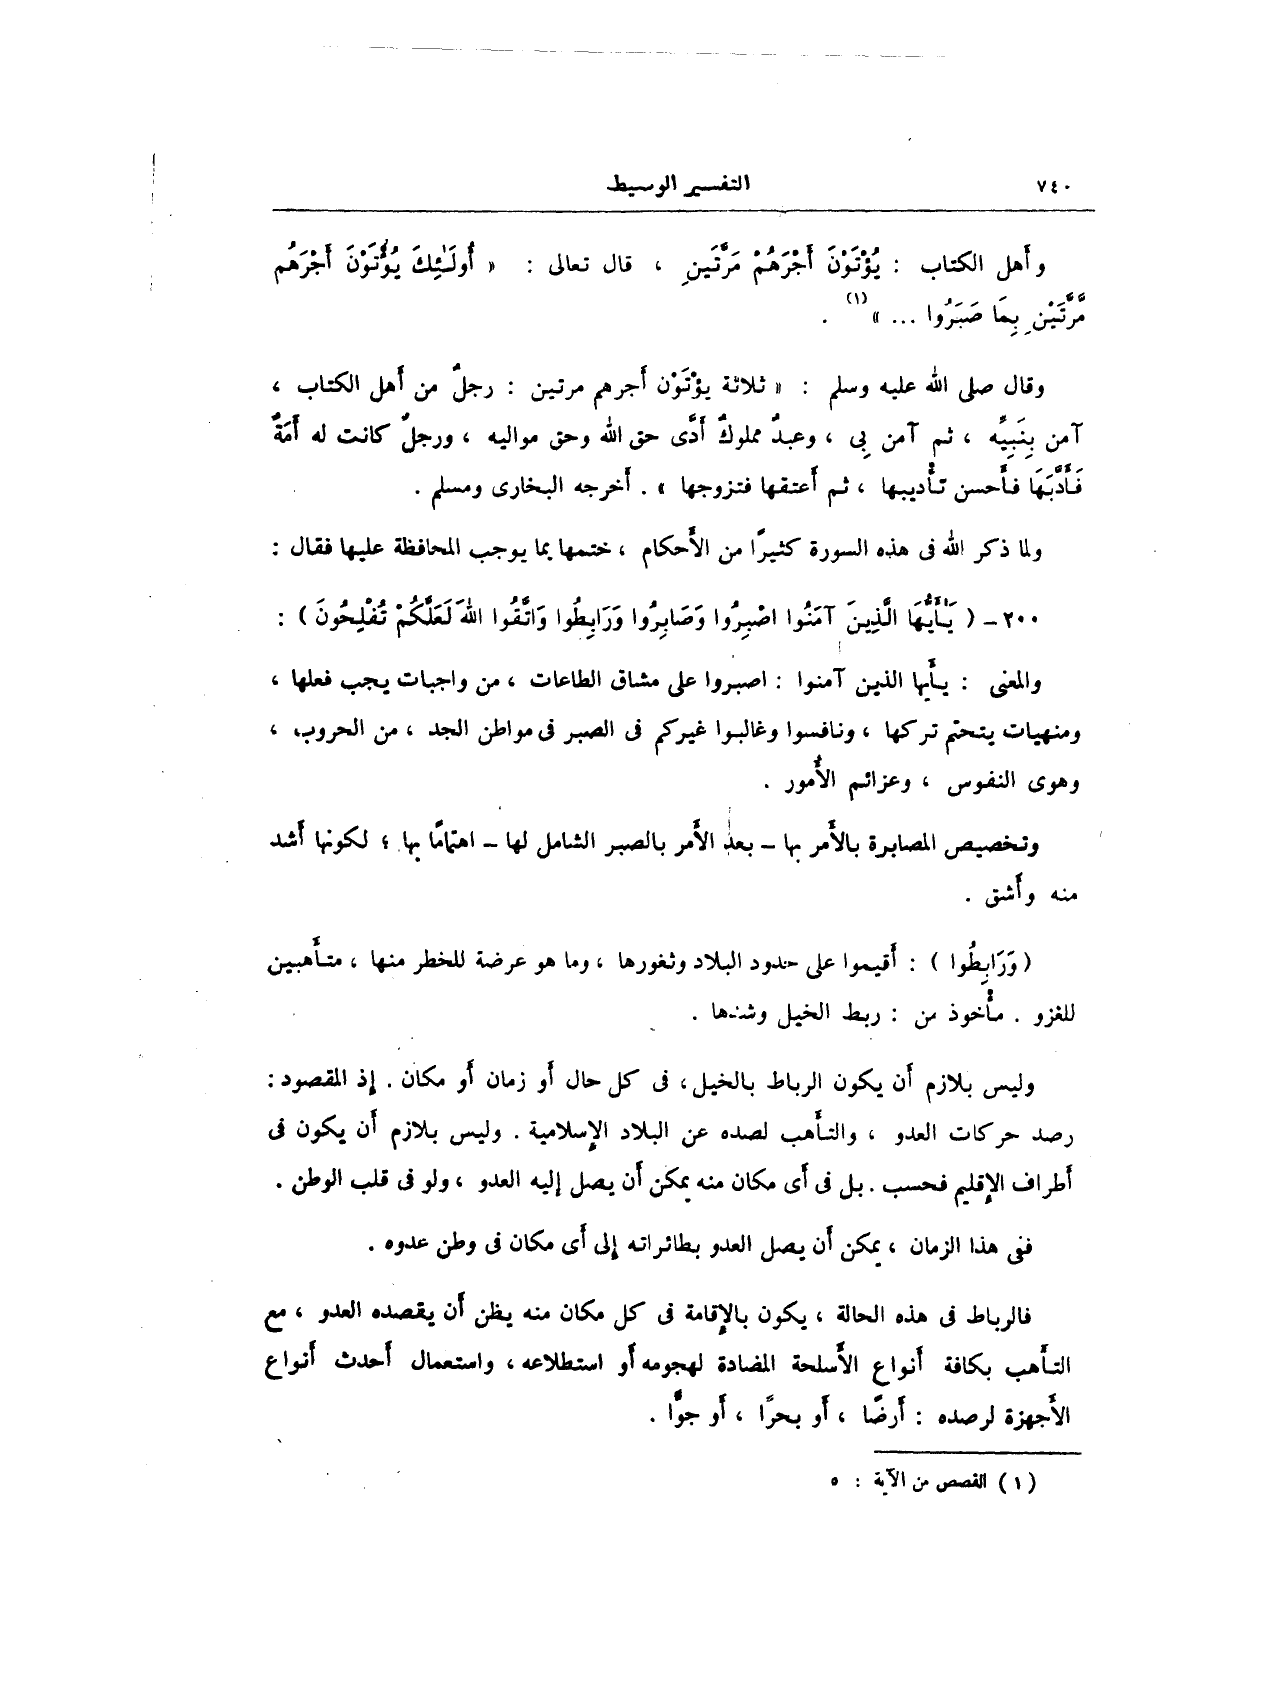 ٧٤٠
التفسير الوسيط
وأهل الكتاب : يُؤْتَوْنَ أَجْرَهُمْ مَرَّتَينِ ، قال تعالى : « أُولَـٰئِكَ يُؤْتَوْنَ أَجْرَهُم
مَّرَّتَيْنِ بِمَا صَبَرُوا ... »(١) .
وقال صلى الله عليه وسلم : « ثلاثة يؤْتَوْن أجرهم مرتين : رجلٌ من أهل الكتاب ،
آمن بِنَبِيِّه ، ثم آمن بِى ، وعبدٌ مملوكٌ أدَّى حق الله وحق مواليه ، ورجلٌ كانت له أَمَةٌ
فَأَدَّبَهَا فأحسن تأْديبها ، ثم أعتقها فتزوجها » . أخرجه البخارى ومسلم .
ولما ذكر الله فى هذه السورة كثيرًا من الأَحكام ، ختمها بما يوجب المحافظة عليها فقال :
٢٠٠ – ( يَـٰأَيُّهَا الَّذِينَ آمَنُوا اصْبِرُوا وَصَابِرُوا وَرَابِطُوا وَاتَّقُوا اللهَ لَعَلَّكُمْ تُفْلِحُونَ ) :
والمعنى : يأَيها الذين آمنوا : اصبروا على مشاق الطاعات ، من واجبات يجب فعلها ،
ومنهيات يتحتم تركها ، ونافسوا وغالبوا غيركم فى الصبر فى مواطن الجد ، من الحروب ،
وهوى النفوس ، وعزائم الأُمور .
وتخصيص المصابرة بالأَمر بها – بعد الأَمر بالصبر الشامل لها – اهتمامًا بها ؛ لكونها أَشد
منه وأَشق .
( وَرَابِطُوا ) : أَقيموا على حدود البلاد وثغورها ، وما هو عرضة للخطر منها ، متأَهبين
للغزو . مأْخوذ من : ربط الخيل وشدها .
وليس بلازم أَن يكون الرباط بالخيل ، فى كل حال أَو زمان أَو مكان . إذ المقصود :
رصد حركات العدو ، والتأَهب لصده عن البلاد الإسلامية . وليس بلازم أَن يكون فى
أَطراف الإقليم فحسب . بل فى أَى مكان منه يمكن أَن يصل إليه العدو ، ولو فى قلب الوطن .
ففى هذا الزمان ، يمكن أَن يصل العدو بطائراته إلى أَى مكان فى وطن عدوه .
فالرباط فى هذه الحالة ، يكون بالإقامة فى كل مكان منه يظن أَن يقصده العدو ، مع
التأَهب بكافة أَنواع الأَسلحة المضادة لهجومه أَو استطلاعه ، واستعمال أَحدث أَنواع
الأَجهزة لرصده : أَرضًا ، أَو بحرًا ، أَو جوًّا .
( ١ ) القصص من الآية : ٥